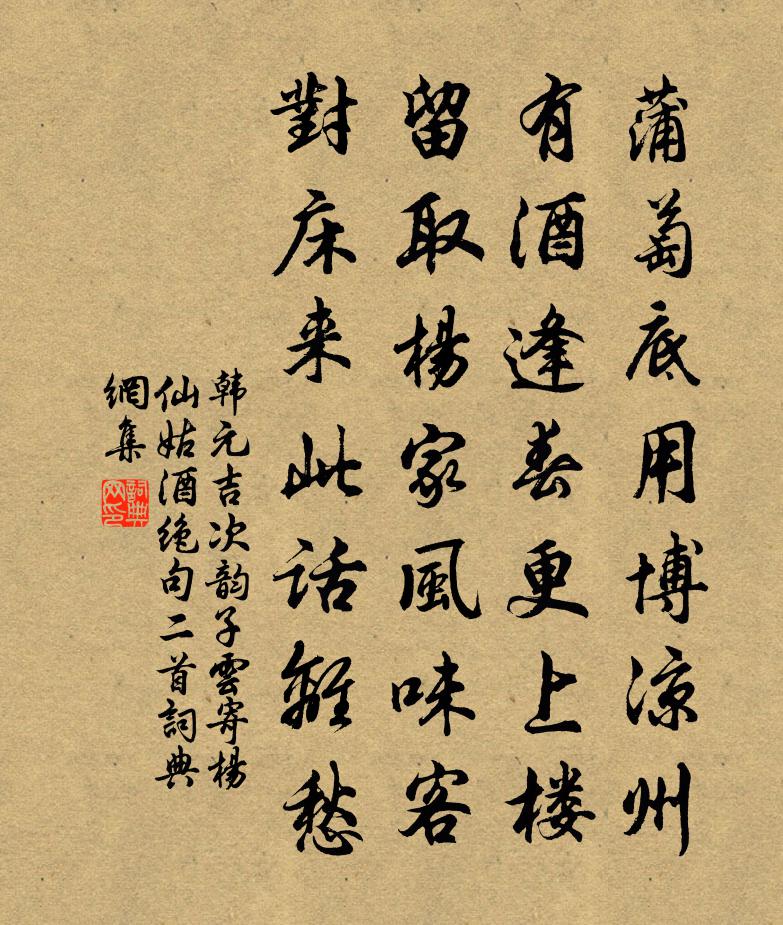 蒲萄底用博凉州
有酒逢春更上楼
留取楊家風味客
對床来此話離愁
韩元吉次韵子雲寄楊
仙姑酒绝句二首詞典
網集
詞典
网印